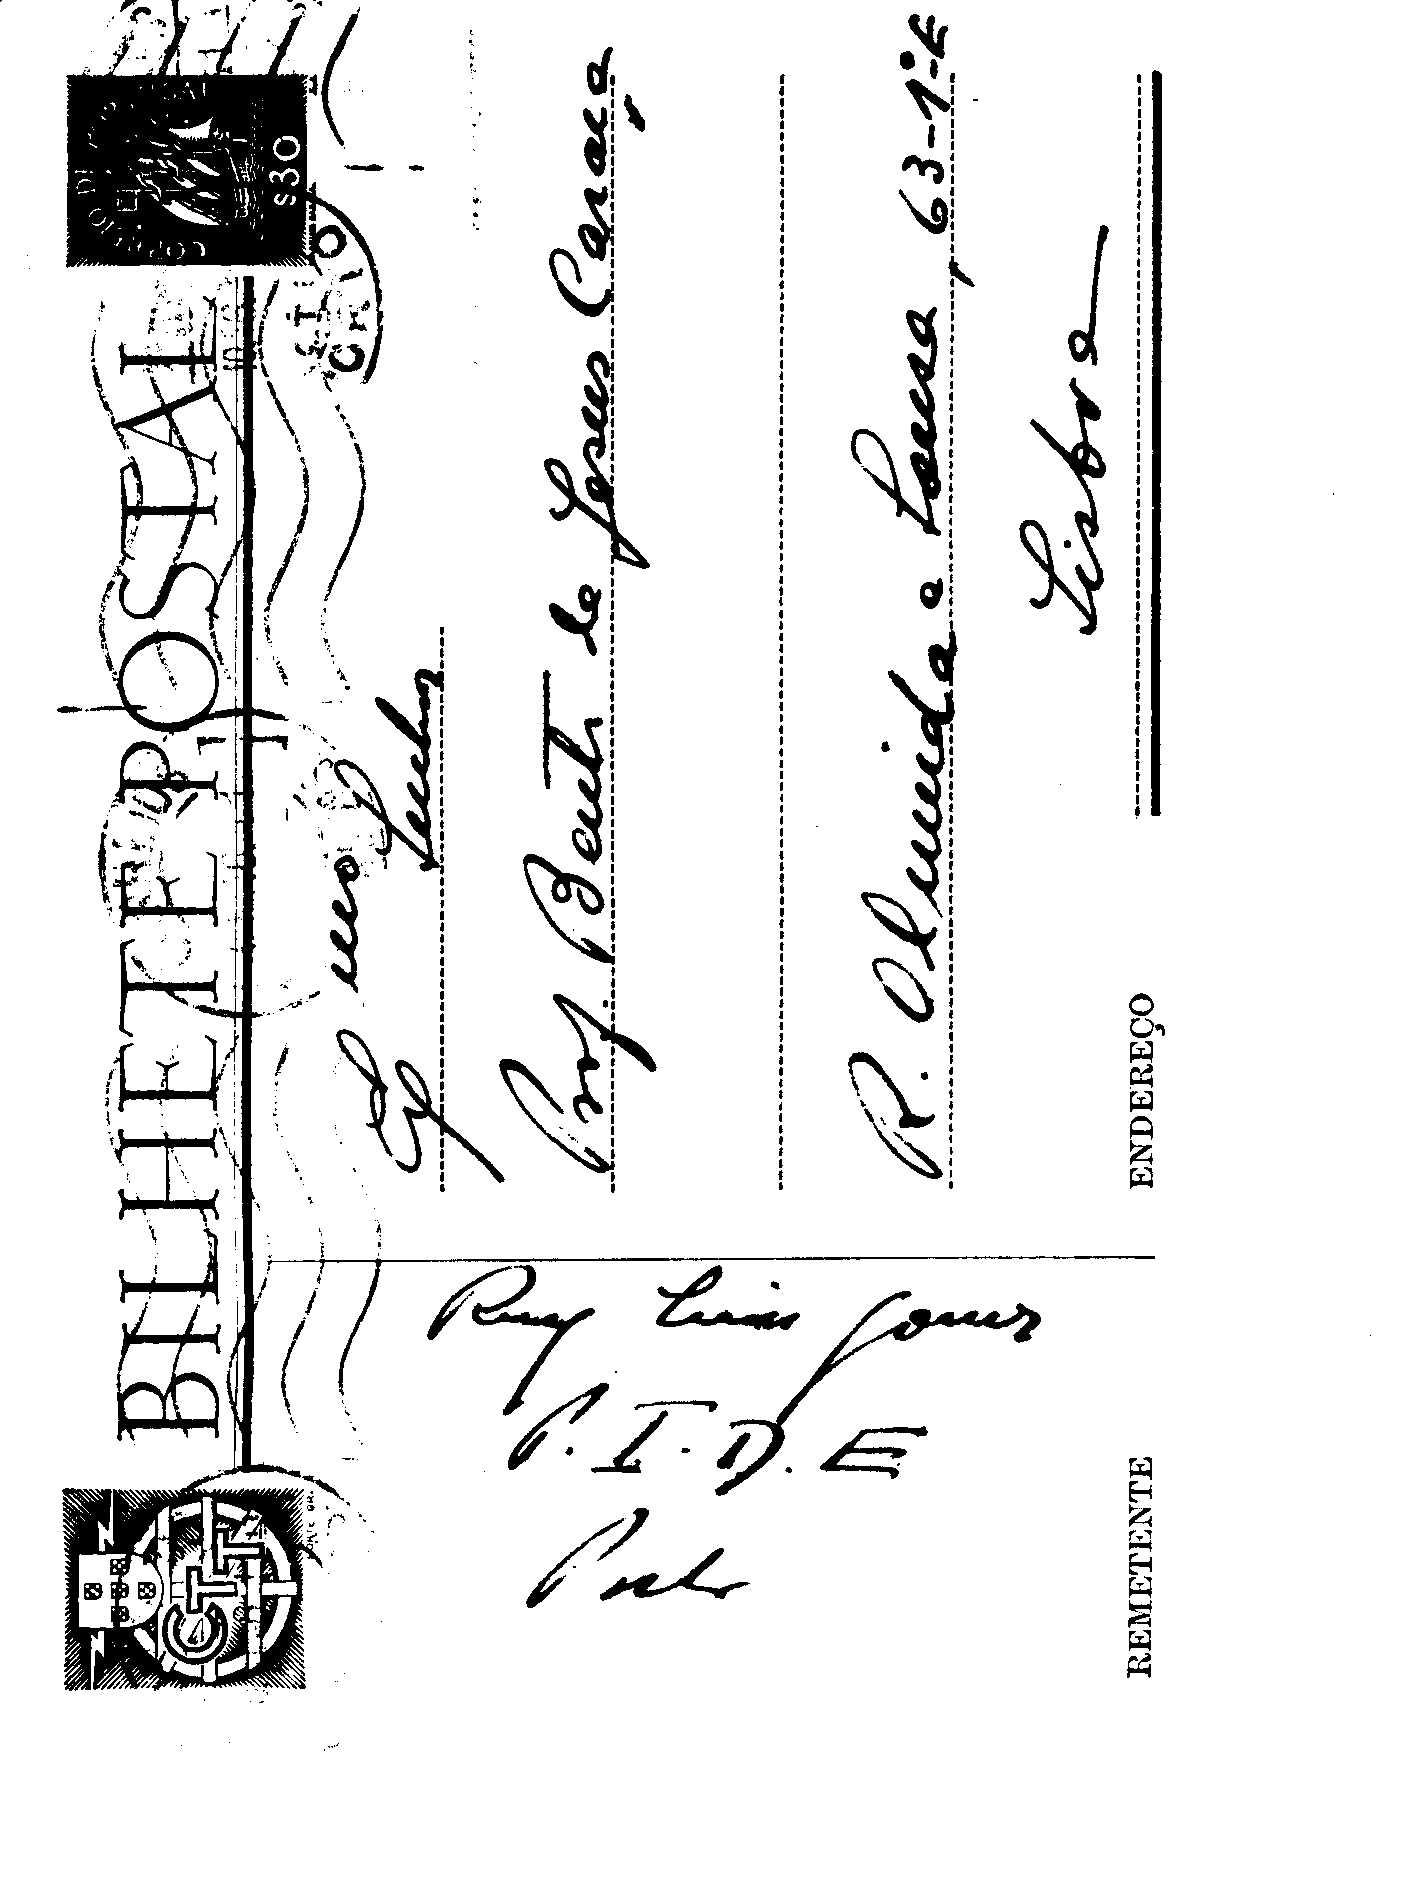 BILHETE POSTAL
CTT
CORREIO DE PORTUGAL
$30
Ex.mo Senhor
Prof. Bento de Jesus Caraça,
R. Almeida e Sousa, 63-1º-E
Lisboa
ENDEREÇO
Ruy Luís Gomes
P.I.D.E
Porto
REMETENTE